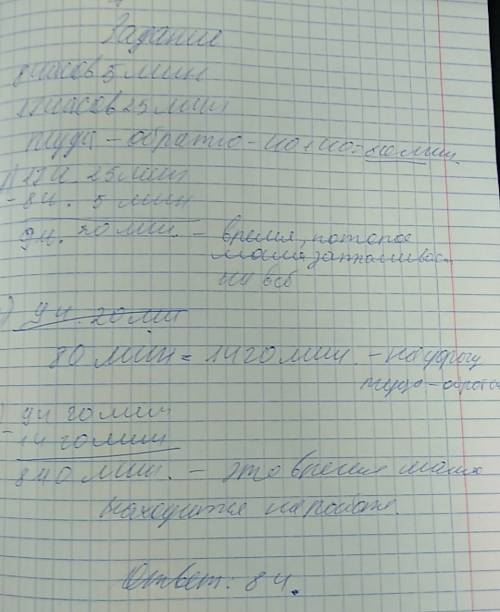 Задание
8 часов 5 мин
17 часов 25 мин
туда - обратно - 40 + 40 =
17ч 25 мин
- 8ч. 5 мин
9ч. 20 мин. - время, которое
мама
на всё
9ч. 20 мин
80 мин = 1ч 20 мин. - на дорогу
туда - обратно
9ч 20 мин
- 1ч 20 мин
8ч 0 мин. - это время мама
находится на работе.
Ответ: 8ч.